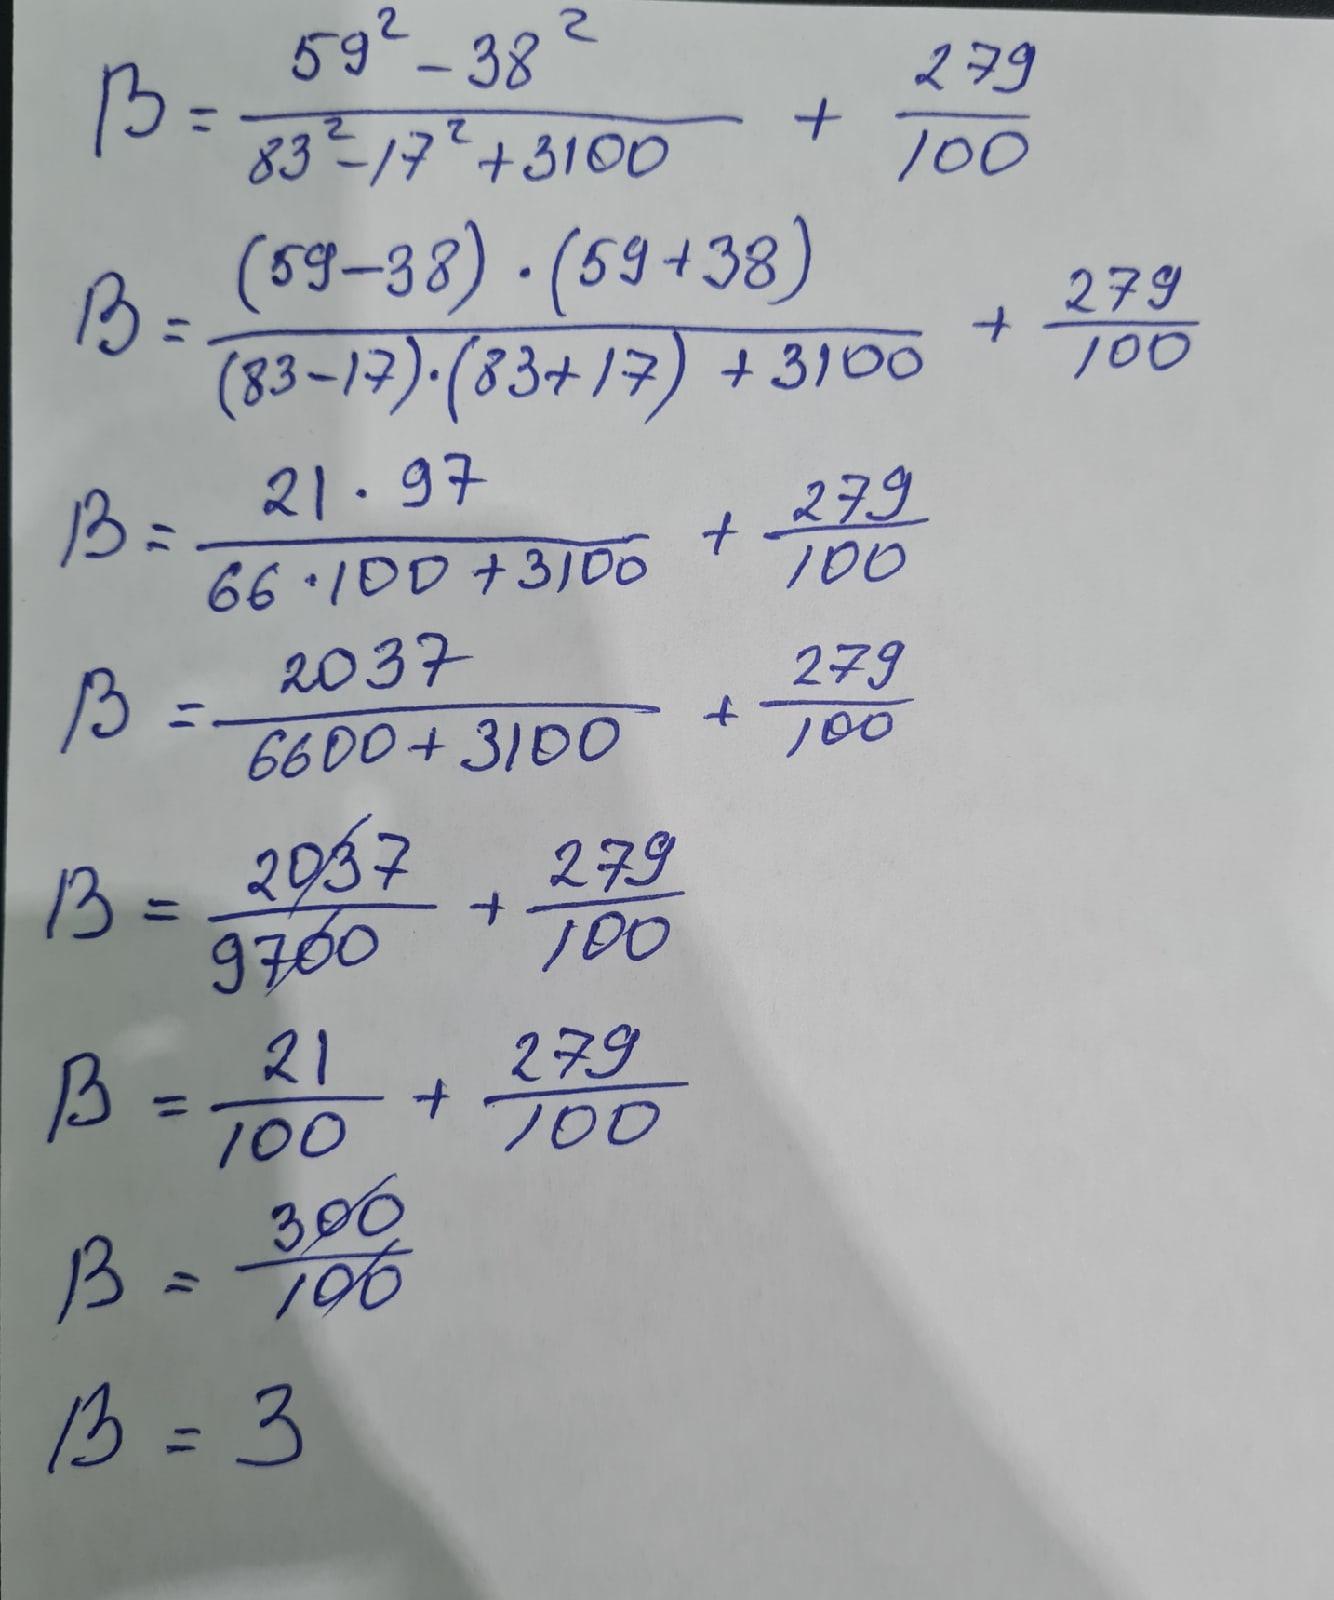 B = (59² - 38²) / (83² - 17² + 3100) + 279/100
B = ((59 - 38) · (59 + 38)) / ((83 - 17) · (83 + 17) + 3100) + 279/100
B = (21 · 97) / (66 · 100 + 3100) + 279/100
B = 2037 / (6600 + 3100) + 279/100
B = 2037/9700 + 279/100
B = 21/100 + 279/100
B = 300/100
B = 3